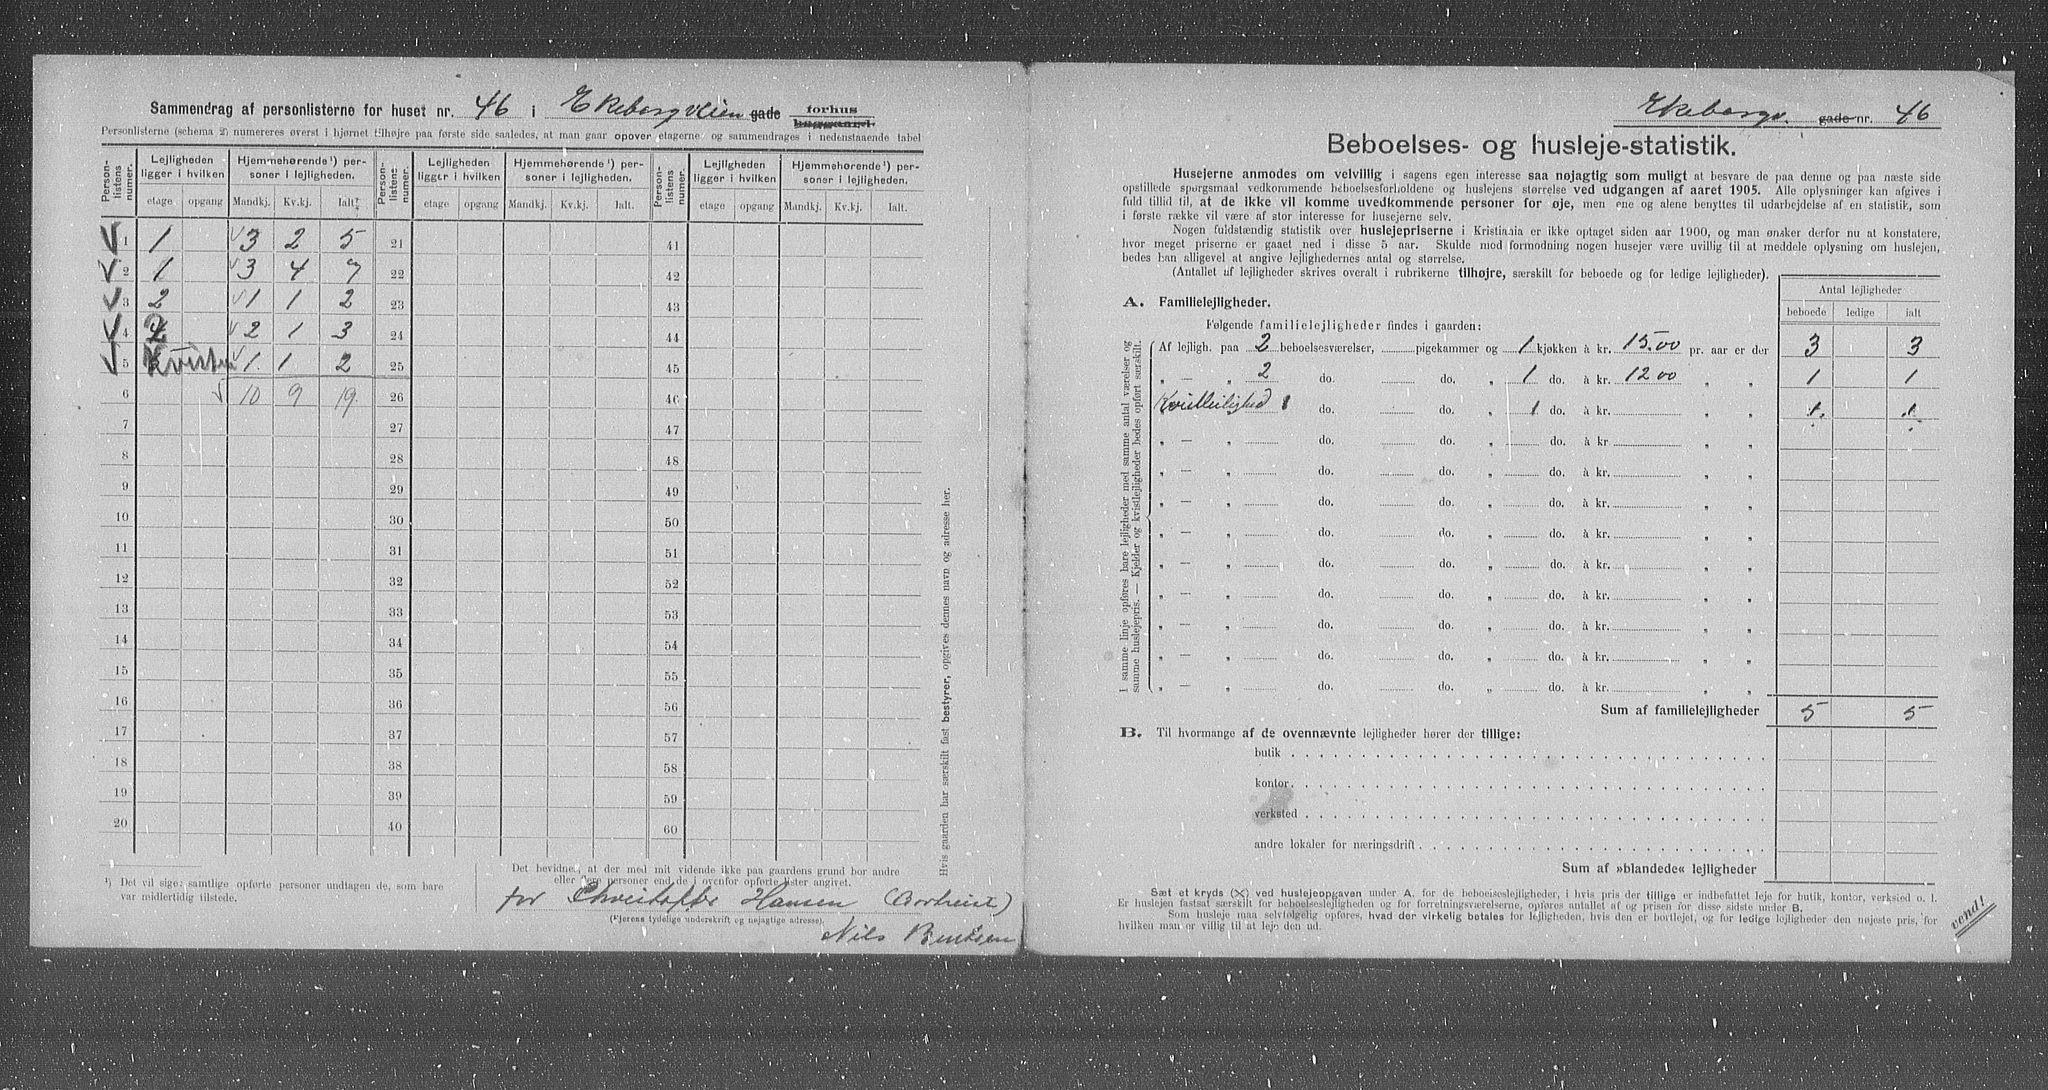 Sammendrag af personlisterne for huset nr. 46 i Ekebergveien gade forhus
baggaard.
Personlisterne (schema 2) numereres øverst i hjørnet tilhøjre paa første side saaledes, at man gaar opover etagerne og sammendrages i nedenstaaende tabel
Person-listens numer. Lejligheden ligger i hvilken Hjemmehørende ¹) personer i lejligheden. Person-listens numer. Lejligheden ligger i hvilken Hjemmehørende ¹) personer i lejligheden. Person-listens numer. Lejligheden ligger i hvilken Hjemmehørende ¹) personer i lejligheden.
etage opgang Mandkj. Kv.kj. Ialt. etage opgang Mandkj. Kv.kj. Ialt. etage opgang Mandkj. Kv.kj. Ialt.
✓ 1 1 ✓ 3 2 5 21 41
✓ 2 1 ✓ 3 4 7 22 42
✓ 3 2 ✓ 1 1 2 23 43
✓ 4 2 ✓ 2 1 3 24 44
✓ 5 Kvisten ✓ 1. 1 2 25 45
6 ✓ 10 9 19. 26 46
7 27 47
8 28 48
9 29 49
10 30 50
11 31 51
12 32 52
13 33 53
14 34 54
15 35 55
16 36 56
17 37 57
18 38 58
19 39 59
20 40 60
Hvis gaarden har særskilt fast bestyrer, opgives dennes navn og adresse her.
¹) Det vil sige: samtlige opførte personer undtagen de, som bare
var midlertidig tilstede.
Det bevidnes, at der med mit vidende ikke paa gaardens grund bor andre
eller flere personer end de i ovenfor opførte lister angivet.
for Christoffer Hansen (Bortreist)
(Ejerens tydelige underskrift og nøjagtige adresse).
Nils Berntsen
Ekebergv. gade nr. 46
Beboelses- og husleje-statistik.
Husejerne anmodes om velvillig i sagens egen interesse saa nøjagtig som muligt at besvare de paa denne og paa næste side
opstillede spørgsmaal vedkommende beboelsesforholdene og huslejens størrelse ved udgangen af aaret 1905. Alle oplysninger kan afgives i
fuld tillid til, at de ikke vil komme uvedkommende personer for øje, men ene og alene benyttes til udarbejdelse af en statistik, som
i første række vil være af stor interesse for husejerne selv.
Nogen fuldstændig statistik over huslejepriserne i Kristiania er ikke optaget siden aar 1900, og man ønsker derfor nu at konstatere,
hvor meget priserne er gaaet ned i disse 5 aar. Skulde mod formodning nogen husejer være uvillig til at meddele oplysning om huslejen,
bedes han alligevel at angive lejlighedernes antal og størrelse.
(Antallet af lejligheder skrives overalt i rubrikerne tilhøjre, særskilt for beboede og for ledige lejligheder).
Antal lejligheder
beboede ledige ialt
A. Familielejligheder.
Følgende familielejligheder findes i gaarden:
I samme linje opføres bare lejligheder med samme antal værelser og
samme huslejepris. — Kjelder og kvistlejligheder bedes opført særskilt.
Af lejligh. paa 2 beboelsesværelser, pigekammer og 1 kjøkken à kr. 15.00 pr. aar er der 3 3
„ — „ 2 do. do. „ 1 do. à kr. 12 00 „ „ 1 1
Kvistleilighed 1 do. do. 1 do. à kr. „ „ 1. 1.
„ — „ do. do. „ do. à kr „ „
„ — „ do. do. „ do. à kr. „ „
„ — „ do. do. „ do. à kr. „ „
„ — „ do. do. „ do. à kr. „ „
„ — „ do. do. „ do. à kr. „ „
„ — „ do. do. „ do. à kr. „ „
„ — „ do. do. „ do. à kr. „ „
„ — „ do. do. „ do. à kr. „ „
„ — „ do. do. „ do. à kr. „ „
Sum af familielejligheder 5 5
B. Til hvormange af de ovennævnte lejligheder hører der tillige:
butik
kontor
verksted
andre lokaler for næringsdrift
Sum af »blandede« lejligheder
Sæt et kryds (X) ved huslejeopgaven under A. for de beboelseslejligheder, i hvis pris der tillige er indbefattet leje for butik, kontor, verksted o. l.
Er huslejen fastsat særskilt for beboelseslejligheden og for forretningsværelserne, opføres antallet af og prisen for disse sidste under B.
Som husleje maa selvfølgelig opføres, hvad der virkelig betales for lejligheden, hvis den er bortlejet, og for ledige lejligheder den nøjeste pris, for
hvilken man er villig til at leje den ud.
vend!